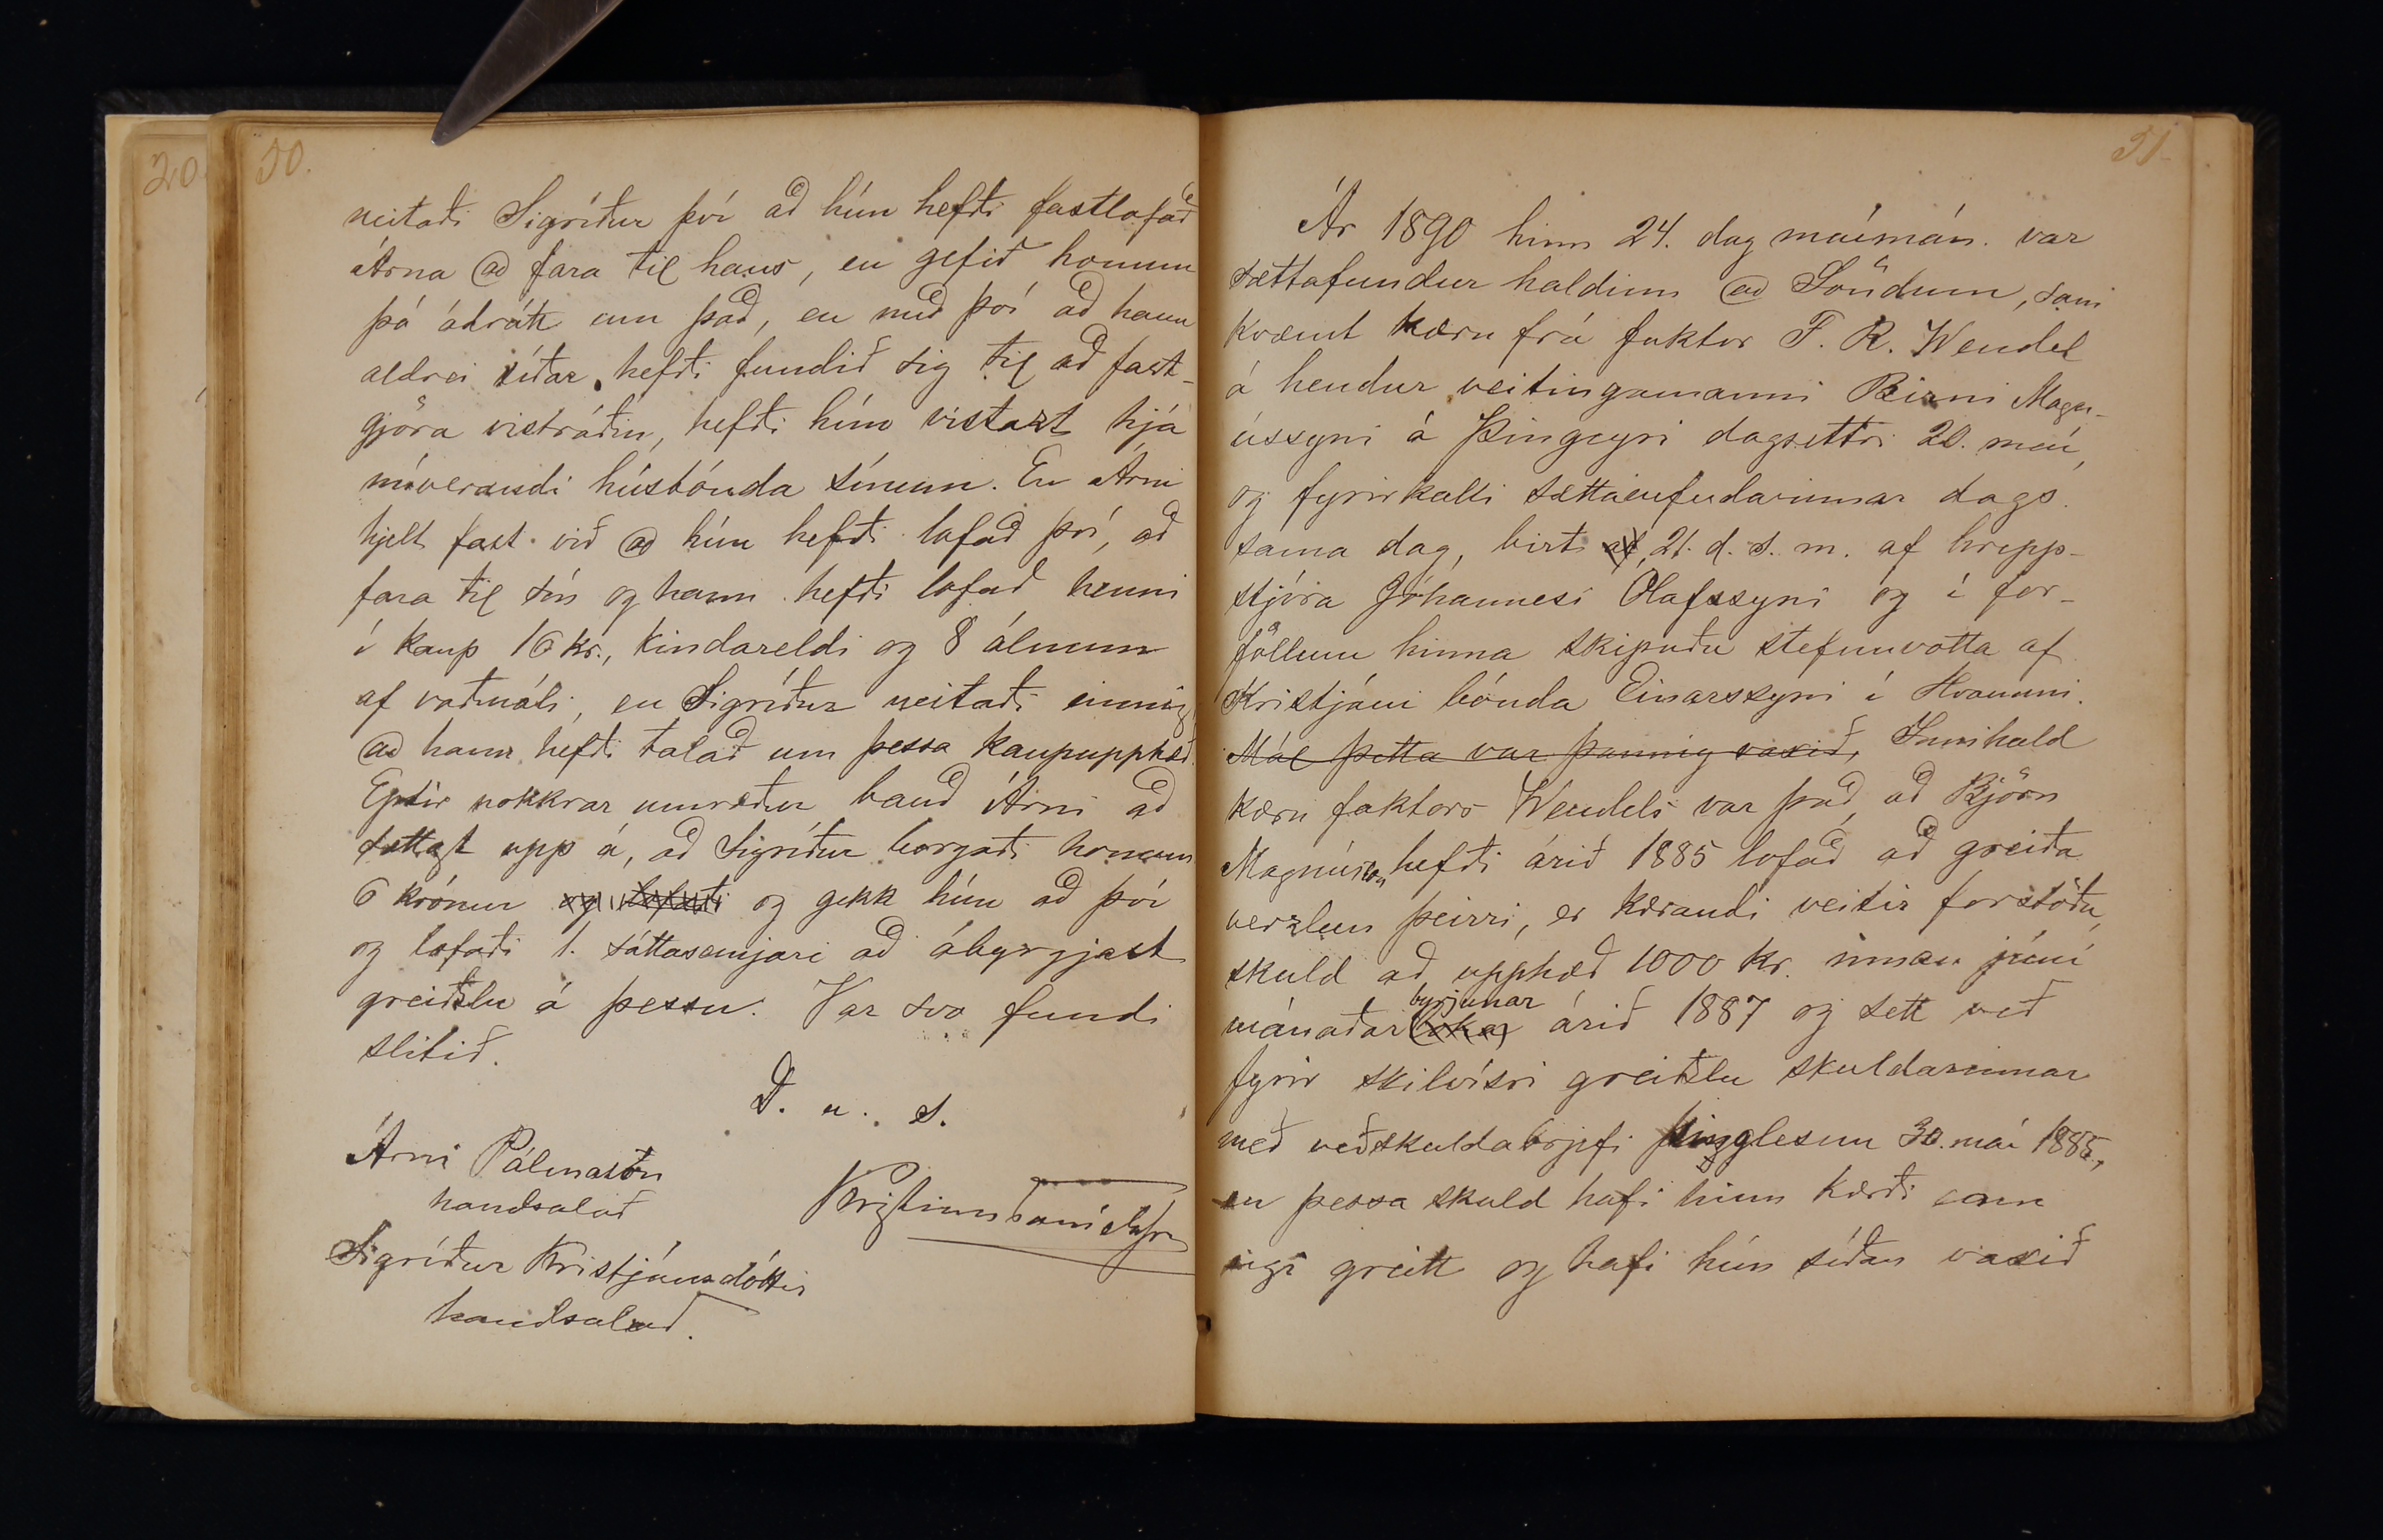 20.
50.
neitaði Sigríður því að hún hefði fastlofað
Árna að fara til hans, en gefið honum
þó ádrátt um það, en með því að hann
aldrei síðar hefði fundið sig til að fast-
gjöra vistráðin, hefði hún vistazt hjá
núverandi húsbónda sínum. En Árni
hjelt fast við að hún hefði lofað því, að
fara til sín og hann hefði lofað henni
í kaup 16 kr., kindareldi og 8 álnum
af vaðmáli, en Sigríður neitaði einnig,
að hann hefði talað um þessa kaupupphæð.
Eptir nokkrar umræður bauð Árni að
sættast upp á, að Sigríður borgaði honum
6 krónur og lofaði og gekk hún að því
og lofaði 1. sáttasemjari að ábyrgjast
greiðslu á þessu. Var svo fundi
slitið.
D. u. s.
Árni Pálmason
handsalað
Kristinn Daníelsson
Sigríður Kristjánsdóttir
handsalað.
51.
Ár 1890 hinn 24. dag maímán. var
sættafundur haldinn að Söndum, sam
kvæmt kæru frá faktor F. R. Wendel
á hendur veitingamanni Birni Magn-
ússyni á Þingeyri dagsettri 20. maí,
og fyrirkalli sættanefndarinnar dags.
sama dag, birt af 21. d. s. m. af hrepp-
stjóra Jóhannesi Ólafssyni og í for-
föllum hinna skipuðu stefnuvotta af
Kristjáni bónda Einarssyni í Hvammi.
Mál þetta var þannig vaxið, Innihald
kæru faktors Wendels var það, að Björn
Magnússon hefði árið 1885 lofað að greiða
verzlun þeirri, er kærandi veitir forstöðu,
skuld að upphæð 1000 kr. innan júní
byrjunar
mánaðar loka árið 1887 og sett veð
fyrir skilvísri greiðslu skuldarinnar
með veðskuldabrjefi þinglesnu 30. maí 1885,
en þessa skuld hafi hinn kærði enn
eigi greitt og hafi hún síðan vaxið